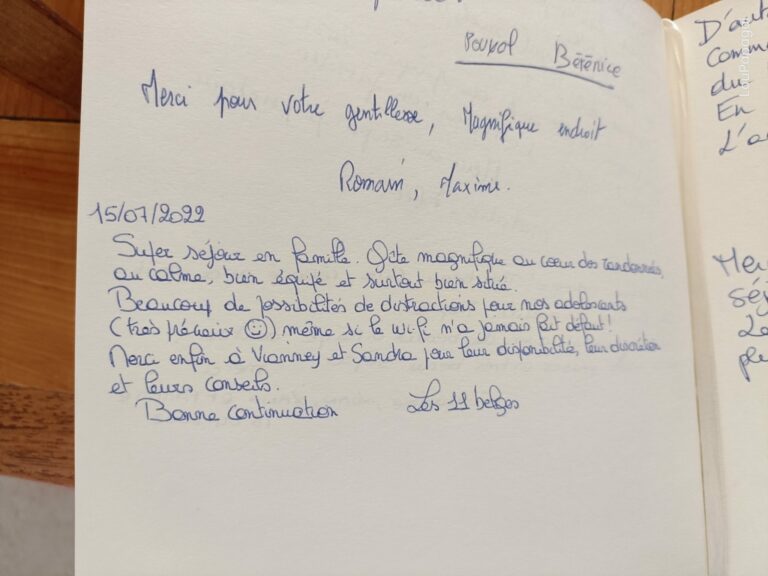 Pourol Bérénice
Merci pour votre gentillesse, Magnifique endroit
Romain, Maxime.
15/07/2022
Super séjour en famille. Gîte magnifique au cœur des randonnées,
au calme, bien équipé et surtout bien situé.
Beaucoup de possibilités de distractions pour nos adolescents
(très précieux ☺) même si le wi-fi n'a jamais fait défaut!
Merci enfin à Vianney et Sandra pour leur disponibilité, leur discrétion
et leurs conseils.
Bonne continuation Les 11 belges
D'aut
comm
du
En
L'a
Mer
séj
Le
pl